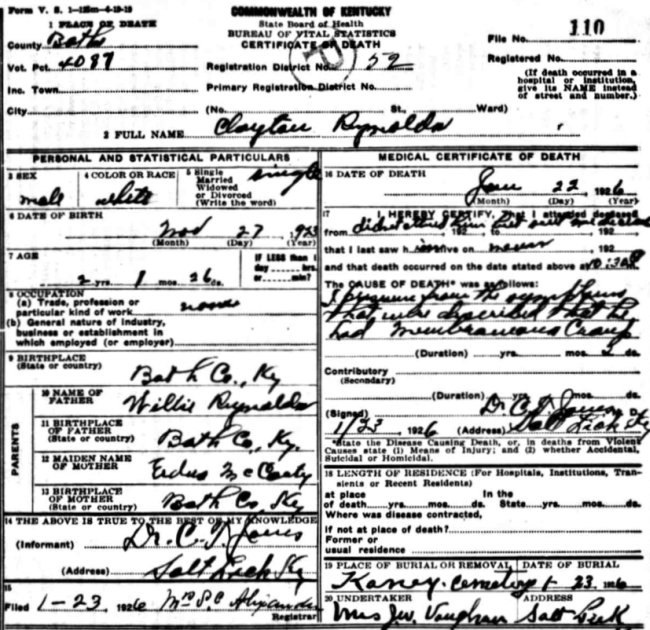 Form V. S. 1-125m-4-19-19
COMMONWEALTH OF KENTUCKY
State Board of Health
BUREAU OF VITAL STATISTICS
CERTIFICATE OF DEATH
1 PLACE OF DEATH
County Bath
Vot. Pct. 4087
Inc. Town
City
File No. 110
Registered No.
Registration District No. 52
Primary Registration District No.
(If death occurred in a
hospital or institution,
give its NAME instead
of street and number.)
(No. St., Ward)
2 FULL NAME Clayton Rynolds
PERSONAL AND STATISTICAL PARTICULARS
3 SEX male
4 COLOR OR RACE white
5 Single
Married
Widowed
or Divorced
(Write the word) single
6 DATE OF BIRTH
Nov 27 1923
(Month) (Day) (Year)
7 AGE
2 yrs. 1 mos. 26 ds.
IF LESS than 1
day hrs.
or min.?
8 OCCUPATION
(a) Trade, profession or
particular kind of work none
(b) General nature of industry,
business or establishment in
which employed (or employer)
9 BIRTHPLACE
(State or country) Bath Co., Ky
PARENTS
10 NAME OF
FATHER Willie Rynolds
11 BIRTHPLACE
OF FATHER
(State or country) Bath Co., Ky.
12 MAIDEN NAME
OF MOTHER McCarty
13 BIRTHPLACE
OF MOTHER
(State or country) Bath Co, Ky
14 THE ABOVE IS TRUE TO THE BEST OF MY KNOWLEDGE
(Informant) Dr. C. T. Jones
(Address) Salt Lick Ky
15
Filed 1-23 1926 Mrs S. C Alexander
Registrar
MEDICAL CERTIFICATE OF DEATH
16 DATE OF DEATH
Jan 22 1926
(Month) (Day) (Year)
17 I HEREBY CERTIFY, That I attended deceased
from didn't attend him 192 to 192
that I last saw him alive on never 192
and that death occurred on the date stated above at 10:30
The CAUSE OF DEATH* was as follows:
I presume from the symptoms
that were described that he
had Membraneous Croup
(Duration) yrs. mos. 2 ds.
Contributory
(Secondary)
(Duration) yrs. mos. ds.
(Signed) Dr C. T. Jones
1/23 1926 (Address) Salt Lick Ky
*State the Disease Causing Death, or, in deaths from Violent
Causes state (1) Means of Injury; and (2) whether Accidental,
Suicidal or Homicidal.
18 LENGTH OF RESIDENCE (For Hospitals, Institutions, Tran-
sients or Recent Residents)
at place In the
of death yrs. mos. ds. State yrs. mos. ds.
Where was disease contracted,
if not at place of death?
Former or
usual residence
19 PLACE OF BURIAL OR REMOVAL DATE OF BURIAL
Kaney Cemetery 1-23 1926
20 UNDERTAKER ADDRESS
Mrs J.W. Vaughan Salt Lick